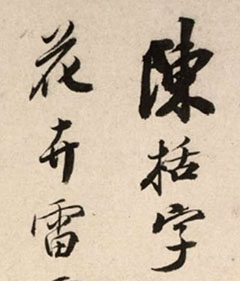 陳括字
花卉雷